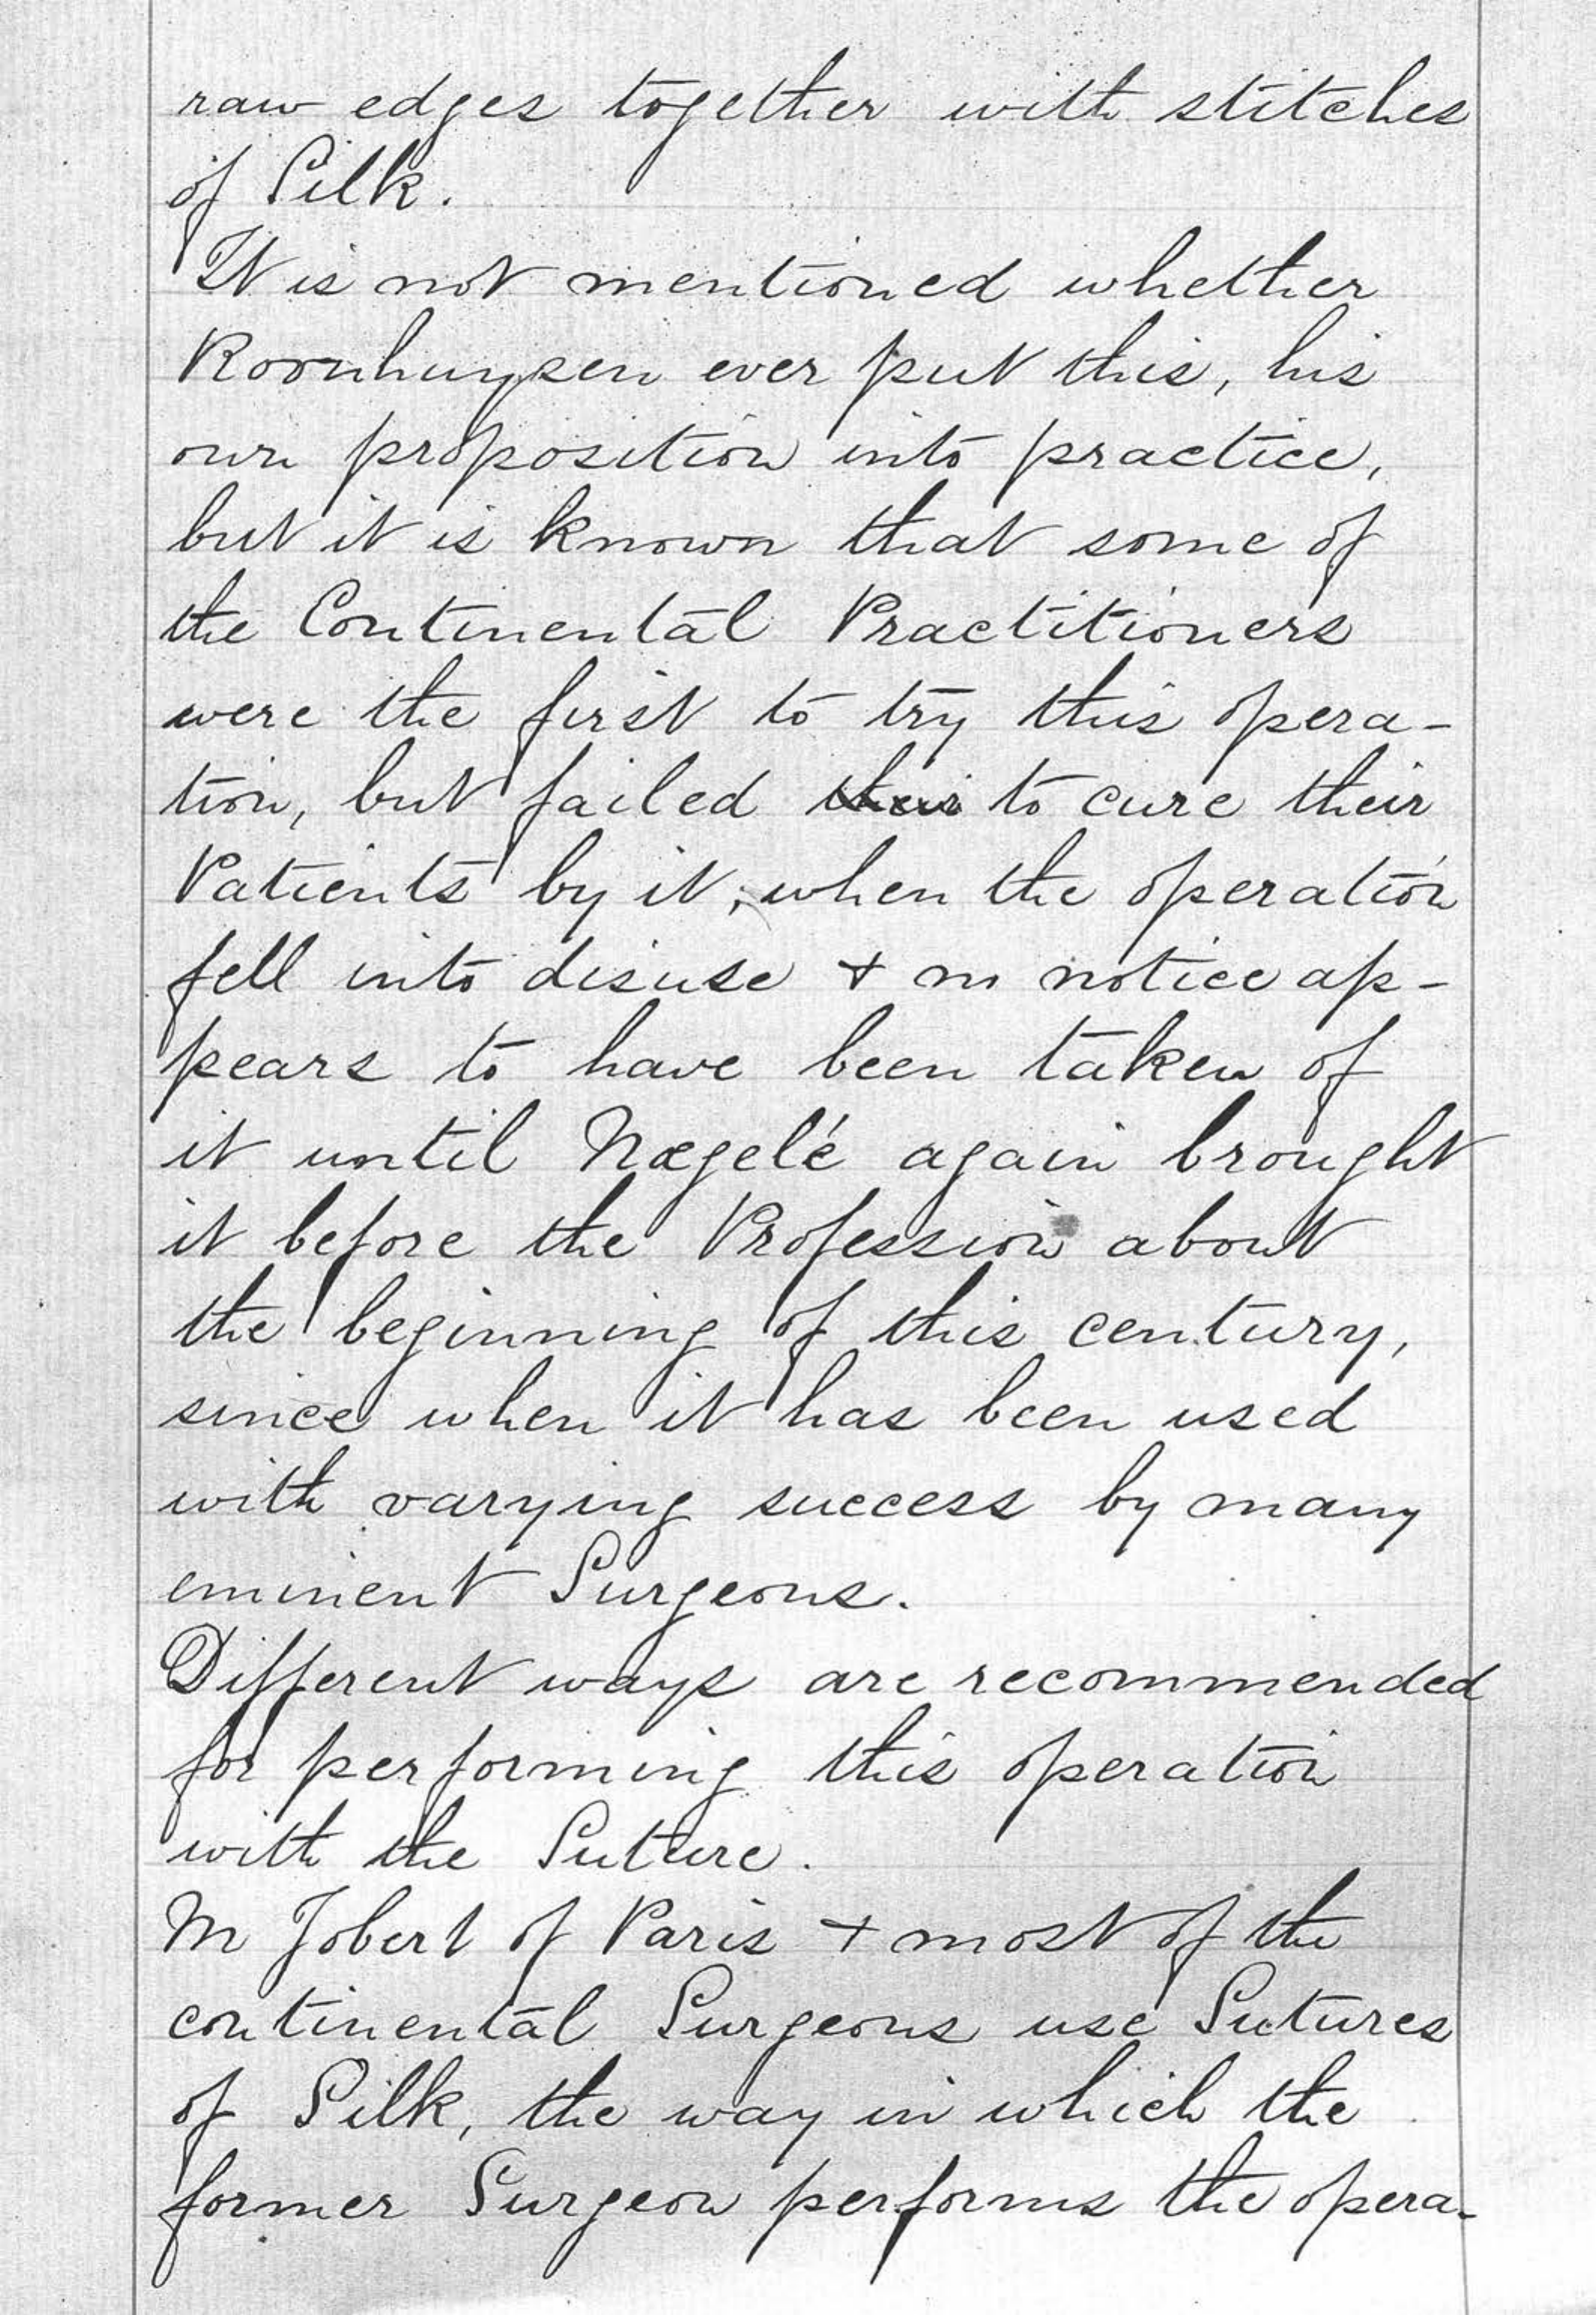 raw edges together with stitches
of Silk.
It is not mentioned whether
Roonhuysen ever put this, his
own proposition into practice,
but it is known that some of
the Continental Practitioners
were the first to try this opera-
tion, but failed their to cure their
Patients by it, when the operation
fell into disuse + no notice ap-
pears to have been taken of
it until Nægelé again brought
it before the Profession about
the beginning of this century,
since when it has been used
with varying success by many
eminent Surgeons.
Different ways are recommended
for performing this operation
with the Suture.
M Jobert of Paris + most of the
continental Surgeons use Sutures
of Silk, the way in which the
former Surgeon performs the opera-